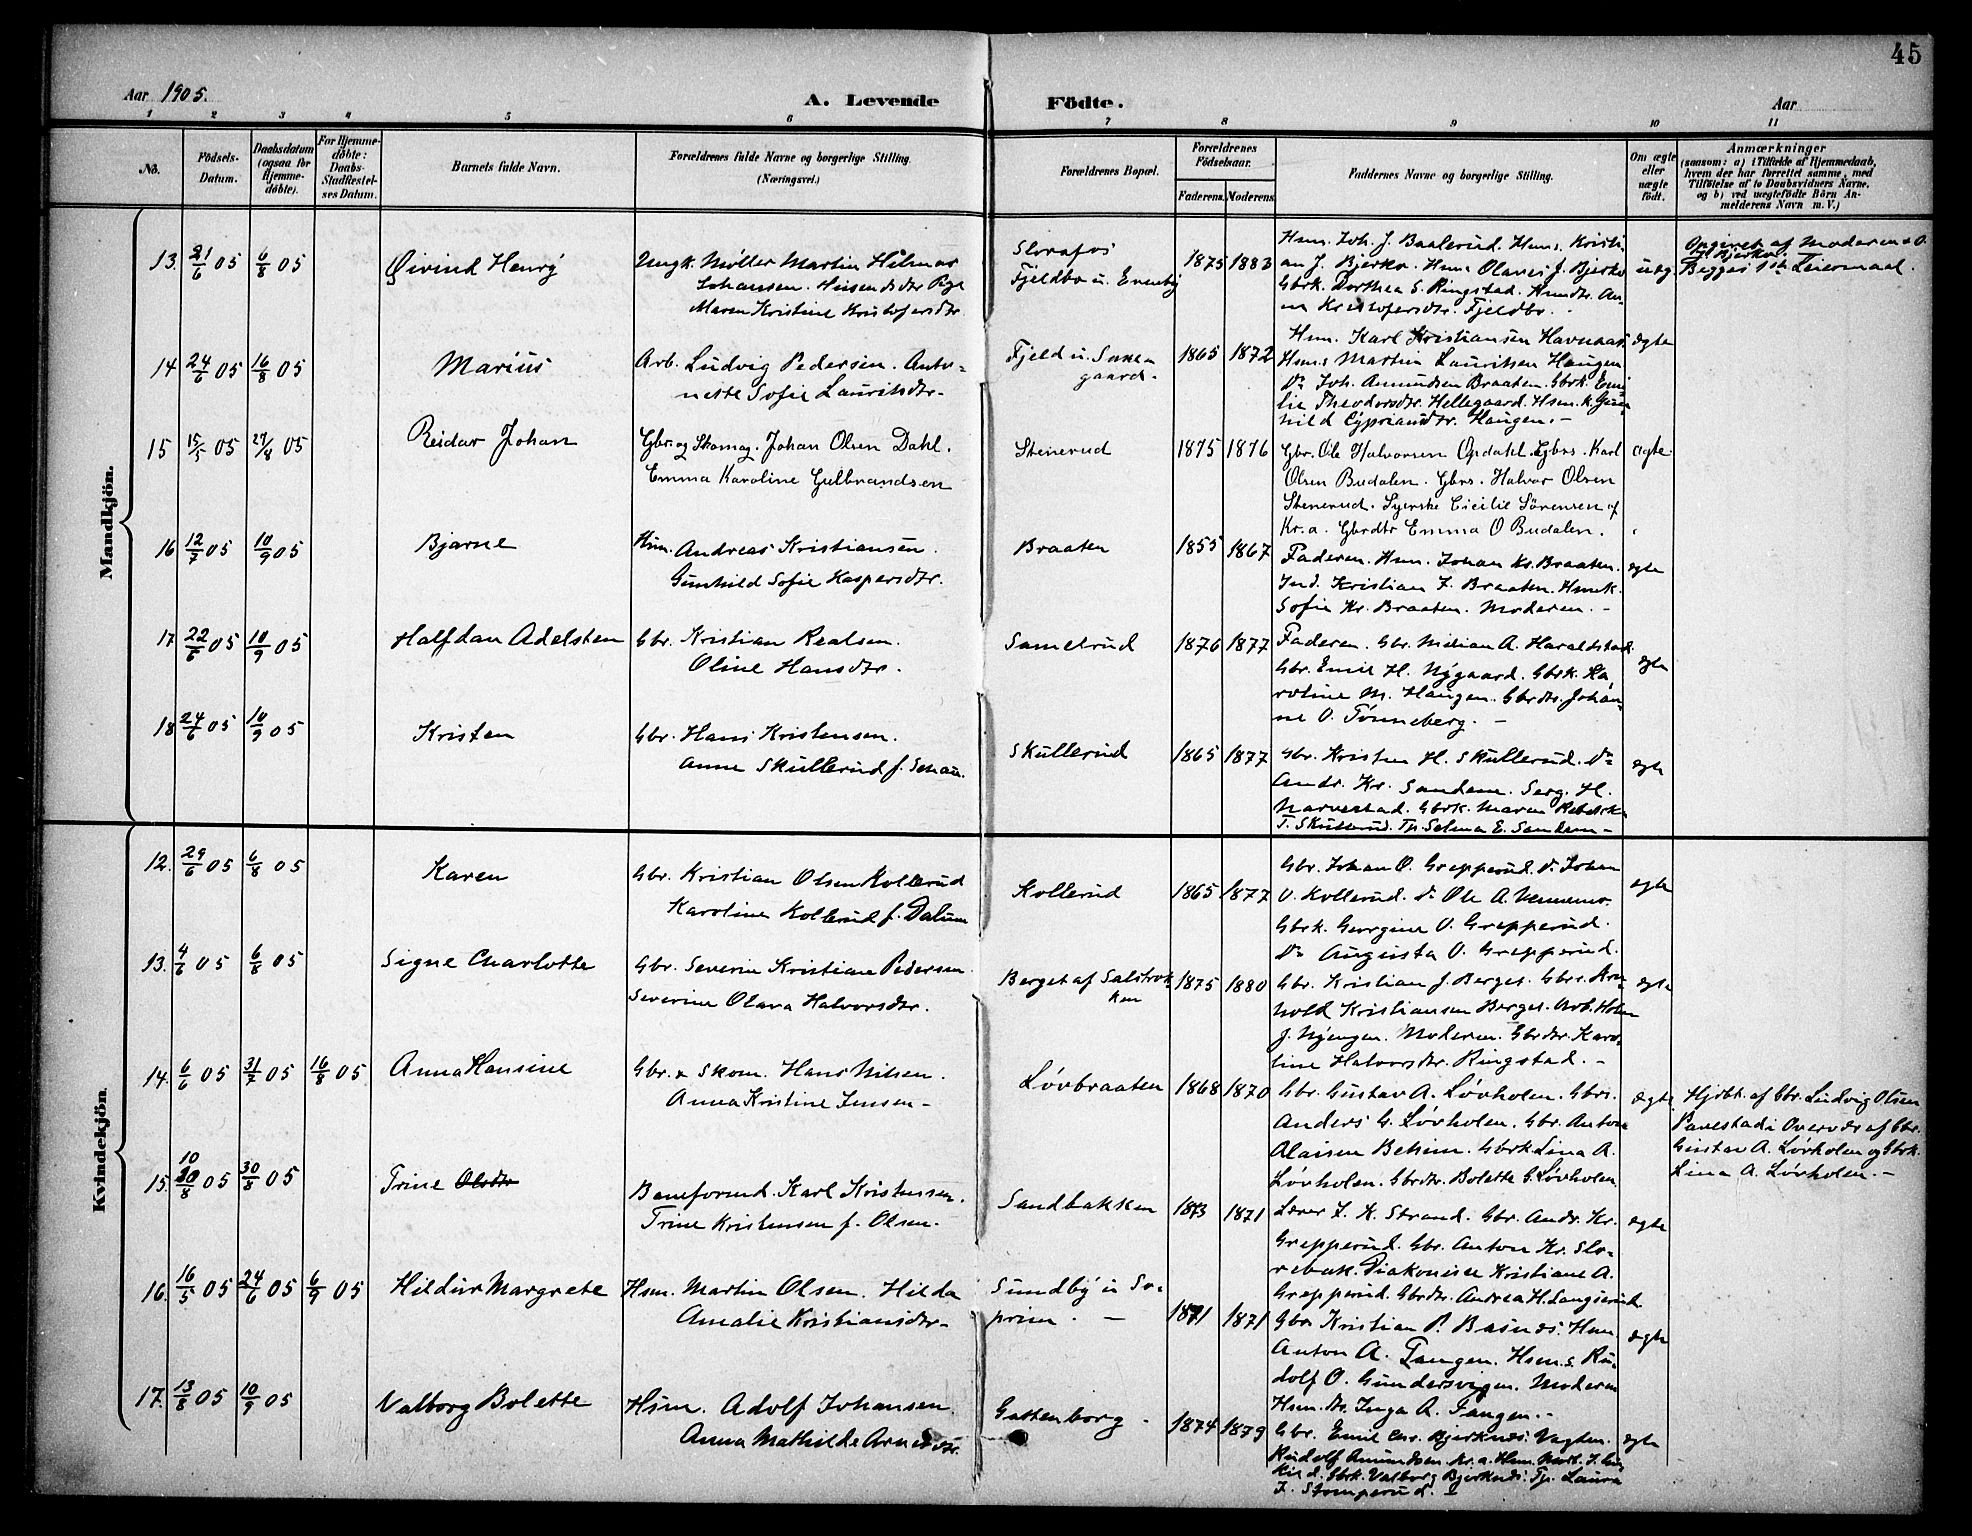 45
Aar 1905.
A. Levende Födte.
Aar
1 2 3 4 5 6 7 8 9 10 11
No.
Födsels-Datum.
Daabsdatum (ogsaa for Hjemme-döbte).
For Hjemme-döbte: Daabs-Stadfæstel-ses Datum.
Barnets fulde Navn.
Forældrenes fulde Navne og borgerlige Stilling.
(Næringsvei.)
Forældrenes Bopæl.
Forældrenes Födselsaar.
Faderens. Moderens.
Faddernes Navne og borgerlige Stilling.
Om ægte eller uægte födt.
Anmærkninger
(saasom: a) i Tilfælde af Hjemmedaab,
hvem der har forrettet samme, med
Tilföielse af to Daabsvidners Navne,
og b) ved uægtefödte Börn An-
melderens Navn m. V.)
Mandkjön.
13. 21/6 05 6/8 05
Øivind Henry
Ungk. Møller Martin Hilmar
Johansen. Huseiersdtr Pige
Maren Kristine Kristofersdtr.
Slorafos
Fjeldbo u. Eveneby
1875 1883
Hsm. Joh. J. Baalerud. Hsms. Kristi-
an J. Bjerke. Hsms Olaves J. Bjerke
Gbrk. Dorthea S. Ringstad. Hsmdtr. An-
na Kristofersdtr. Fjeldbo. -
uægt
Opgivet af Moderen & O.
J. Bjerke.
Begges 1ste Leiermaal.
14 24/6 05 16/8 05
Marius
Arb. Ludvig Pedersen. Anto-
nette Sofie Lauritsdtr-
Fjeld u. Suse-
gaard.
1865 1872
Hsm. Karl Kristiansen Havnaas
Hsms Martin Lauritsen Haugen
Do Joh. Amundsen Braaten. Gbrk. Emi
lie Theodorsdtr. Hellegaard. Hsm. k. Gun
hild Cypriansdtr. Haugen. -
ægte
15 15/5 05 27/8 05
Reidar Johan
Gbr. og Skomag. Johan Olsen Dahl.
Emma Karoline Gulbrandsen
Stenerud
1875 1876
Gbr. Ole Halvorsen Opdahl. Gbrs. Karl
Olsen Budalen. Gbrs. Halvor Olsen
Stenerud. Syerske Cicilie Sörensen af
Kr.a. Gbrdtr Emma O Budalen.
ægte
16 12/7 05 10/9 05
Bjarne
Hsm. Andreas Kristiansen.
Gunhild Sofie Kaspersdtr.
Braaten
1855 1867
Faderen. Hsm. Johan Kr. Braaten.
Ind. Kristian F. Braaten. Hsmk.
Sofie Kr. Braaten. Moderen. -
ægte
17 22/6 05 10/9 05
Halfdan Adelsten
Gbr. Kristian Realsen.
Oline Hansdtr.
Sametrud
1876 1877
Faderen. Gbr. Milian A. Haraldstad.
Gbr. Emil H. Nygaard. Gbrk. Ka-
roline M. Haugen. Gbrdtr. Johan-
ne O. Tönneberg. -
ægte
18 24/6 05 10/9 05
Kristen
Gbr. Hans Kristensen.
Anne Skullerud f. Schau.
Skullerud
1865 1877
Gbr. Kristen H. Skullerud. Do
Andr. Kr. Sandem. Serg. H.
Narvestad. Gbrk. Maren Rebekka
T. Skullerud. Tp. Selma E. Sandem-
ægte
Kvindekjön
12. 29/6 05 6/8 05
Karen
Gbr. Kristian Olsen Kollerud
Karoline Kollerud f. Dalum
Kollerud
1865 1877
Gbr. Johan O. Grepperud. Do Johan
O. Kollerud. Do Ole A. Vennemo.
Gbrk. Georgine O. Grepperud.
Do Augusta O. Grepperud.
ægte
13. 4/6 05 6/8 05
Signe Charlotte
Gbr. Severin Kristian Pedersen
Severine Olava Halvorsdtr.
Berget af Salstrok-
ken
1875 1880
Gbr. Kristian J. Berget. Gbrs. Arn-
hold Kristiansen Berget. Arb. Hans
J. Nyengen. Moderen. Gbrdtr. Karo-
line Halvorsdtr. Ringstad. -
ægte
14. 6/6 05 31/7 05 16/8 05
Anna Hansine
Gbr. & Skom. Hans Nilsen.
Anna Kristine Jensen-
Lövbraaten
1868 1870
Gbr. Gustav A. Lövholen. Gbrs.
Anders G. Lövholen. Gbr. Anton
Alaisen Behim. Gbrk Lina A.
Lövholen. Gbrdtr. Bolette G. Lövholen.
ægte
Hjdbt. af Gbr. Ludvig Olsen
Pavestad i Overvær af Gbr.
Gustav A. Lövholen og Gbrk.
Lina A. Lövholen. -
15. 10 30/8 05 30/8 05
Trine Olsdtr
Baneformd. Karl Kristensen.
Trine Kristensen f. Olsen.
Sandbakken
1873 1871
Lærer J. K. Strand. Gbr. Andr. Kr.
Grepperud. Gbr. Anton Kr. Slo-
rebak. Diakonisse Kristiane A.
Grepperud. Gbrdtr. Andrea H. Langserud
ægte
16. 16/5 05 24/6 05 6/9 05
Hildur Margrete
Hsm. Martin Olsen. Hilda
Amalie Kristiansdtr-
Sundby u So-
prim. -
1871 1871
Gbr Kristian P. Basnes. Hsm.
Anton A. Tangen. Hsm.s. Ru-
dolf O. Gundersvigen. Moderen
Hsm. dtr. Inga A. Tangen. -
ægte
17. 13/8 05 10/9 05
Valborg Bolette
Hsm. Adolf Johansen
Anna Mathilde Arnesdtr.
Gattenborg -
1874 1879
Gbr. Emil Chr. Bjerknes. Vagtm.
Rudolf Amundsen Kr.a. Hsm. Mart. J.
Gbrk. Valborg Bjerknes. Tp. Laura
J. Stomperud.
ægte